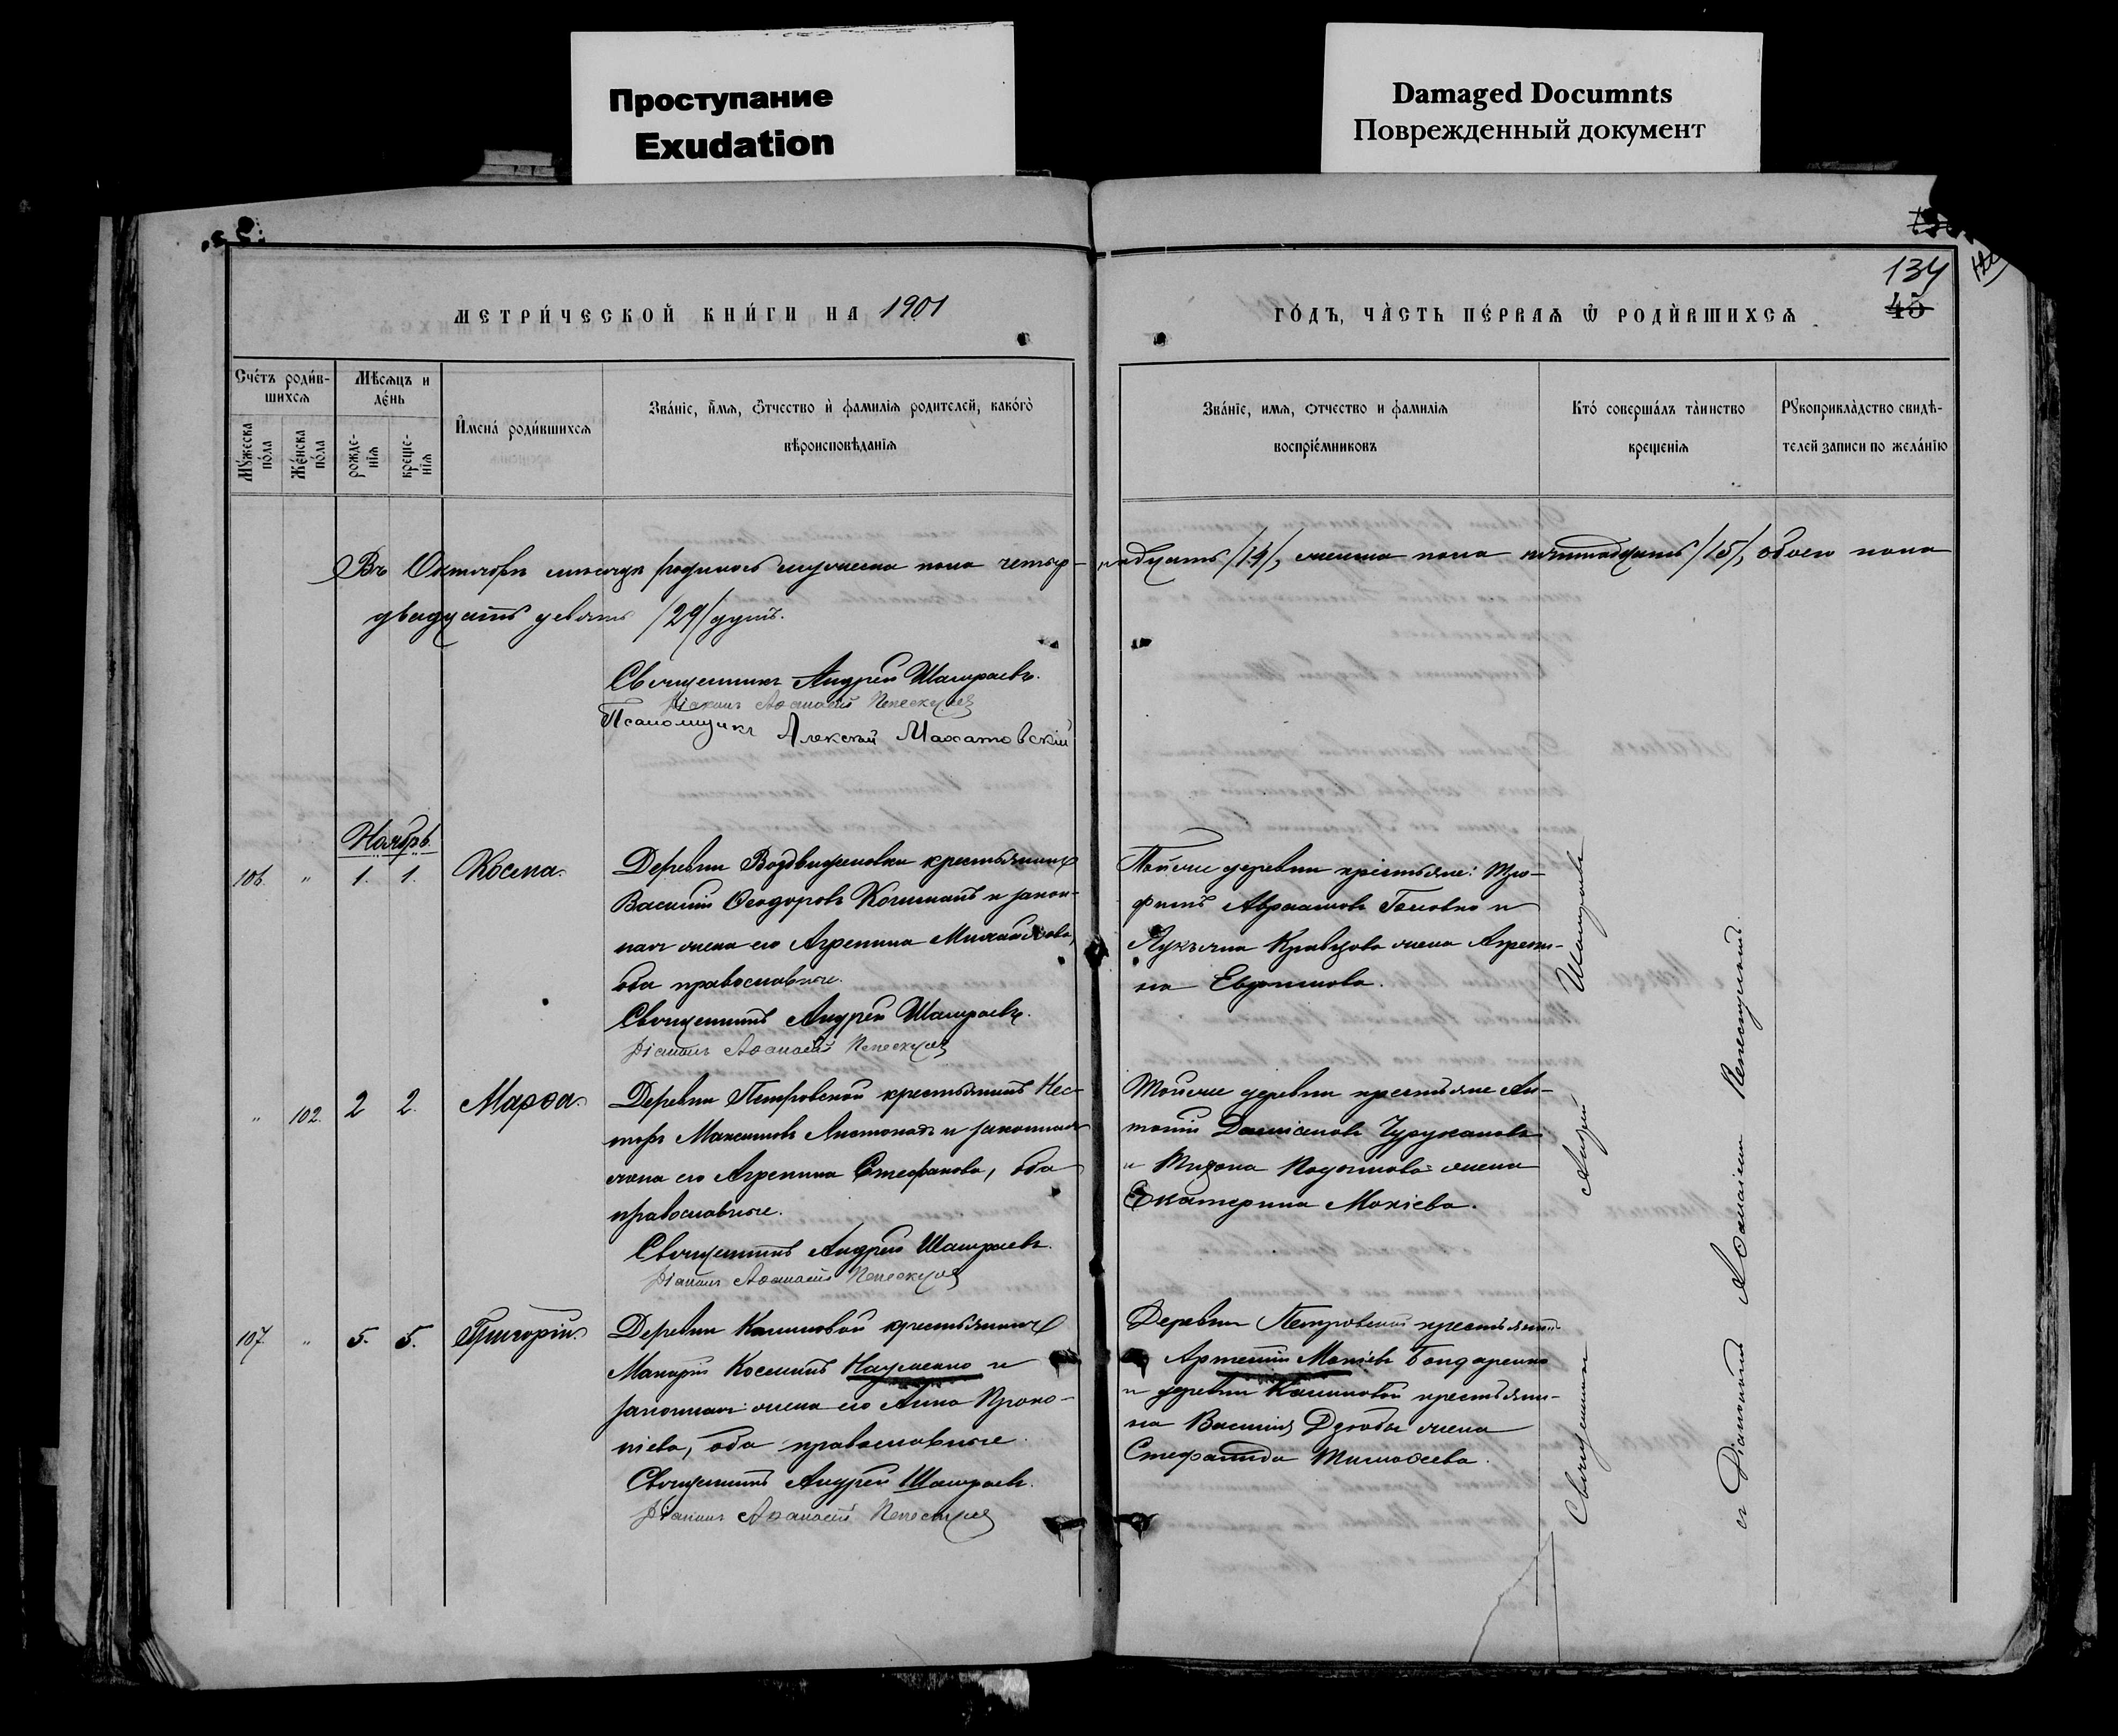 Проступание
Exudation
Damaged Documnts
Поврежденный документ
134
45
МЕТРИ́ЧЕСКОЙ КНИ́ГИ НА 1901
ГО́ДЪ, ЧА̀СТЬ ПЕ́РВАѦ Ѽ РОДИ́ВШИХСѦ
Сче́тъ роди́в-
шихсѧ
Мѣ́сѧцъ и
де́нь
Му́жеска
по́ла
Же́нска
по́ла
рожде-
нїѧ
креще-
нїѧ
И҆мена́ роди́вшихсѧ
Зва́нїе, и҆́мѧ, ѻ҆́тчество и҆ фамилїѧ родителей, како́гѡ
вѣроисповѣ́данїѧ
Зва́нїе, имѧ, отчество и фамилїѧ
воспрїе́мниковъ
Кто́ совершáлъ тáинство
крещенїѧ
Рꙋкоприкла́дство свидѣ́-
телей записи по жела́нїю
Въ Октябрѣ мѣсяцѣ родилось мужеска пола четыр-надцать /14/, женска пола пятнадцать /15/, обоего пола
двадцать девять /29/ душъ.
Священникъ Андрей Шашраевъ.
Діаконъ Аѳанасій
Псаломщикъ Алексѣй Махатовскій
Ноябрь.
106. " 1. 1. Косма.
Деревни Воздвиженовки крестьянинъ
Василій Ѳеодоровъ и закон-
ная жена его Агрепина Михайлова,
оба православные.
Священникъ Андрей Шашраевъ.
Діаконъ Аѳанасій
Тойже деревни крестьяне: Тро-
фимъ Авраамовъ Головко и
Лукьяна Кравцова жена Агрепи-
на Ефимова.
" 102. 2 2. Марѳа.
Деревни Петровской крестьянинъ Нес-
торъ Максимовъ Листопадъ и законная
жена его Агрепина Стефанова, оба
православные.
Священникъ Андрей Шашраевъ.
Діаконъ Аѳанасій
Тойже деревни крестьяне Ан-
тоній Даміановъ
и жена
Екатерина Мокіева.
107. " 5. 5. Григорій.
Деревни Калиновой крестьянинъ
Макарій Косминъ Науменко и
законная жена его Анна Проко-
піева, оба православные.
Священникъ Андрей Шашраевъ.
Діаконъ Аѳанасій
Деревни Петровской крестьянинъ
Артемій Мокіевъ Бондаренко
и деревни Калиновой крестьяни-
на Василія Дзюбы жена
Стефанида Тимоѳеева.
Священникъ Андрей Шашраевъ
съ Діакономъ Аѳанасіемъ